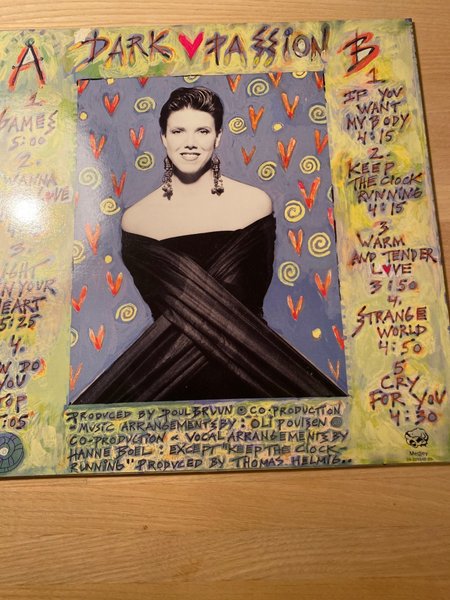 A
DARK PASSION
B
1.
GAMES
5:00
2.
WANNA
LOVE
3.
IGHT
N YOUR
HEART
5:25
4.
W DO
YOU
TOP
5:05
1.
IF YOU
WANT
MY BODY
4:15
2.
KEEP
THE CLOCK
RUNNING
4:15
3
WARM
AND TENDER
LOVE
3:50
4.
STRANGE
WORLD
4:50
5
CRY
FOR YOU
4:30
PRODUCED BY POUL BRUUN @ CO-PRODUCTION
MUSIC ARRANGEMENTS BY: OLI POULSEN @
CO-PRODUCTION & VOCAL ARRANGEMENTS BY
HANNE BOEL: EXCEPT "KEEP THE CLOCK
RUNNING" PRODUCED BY THOMAS HELMIG..
Medley